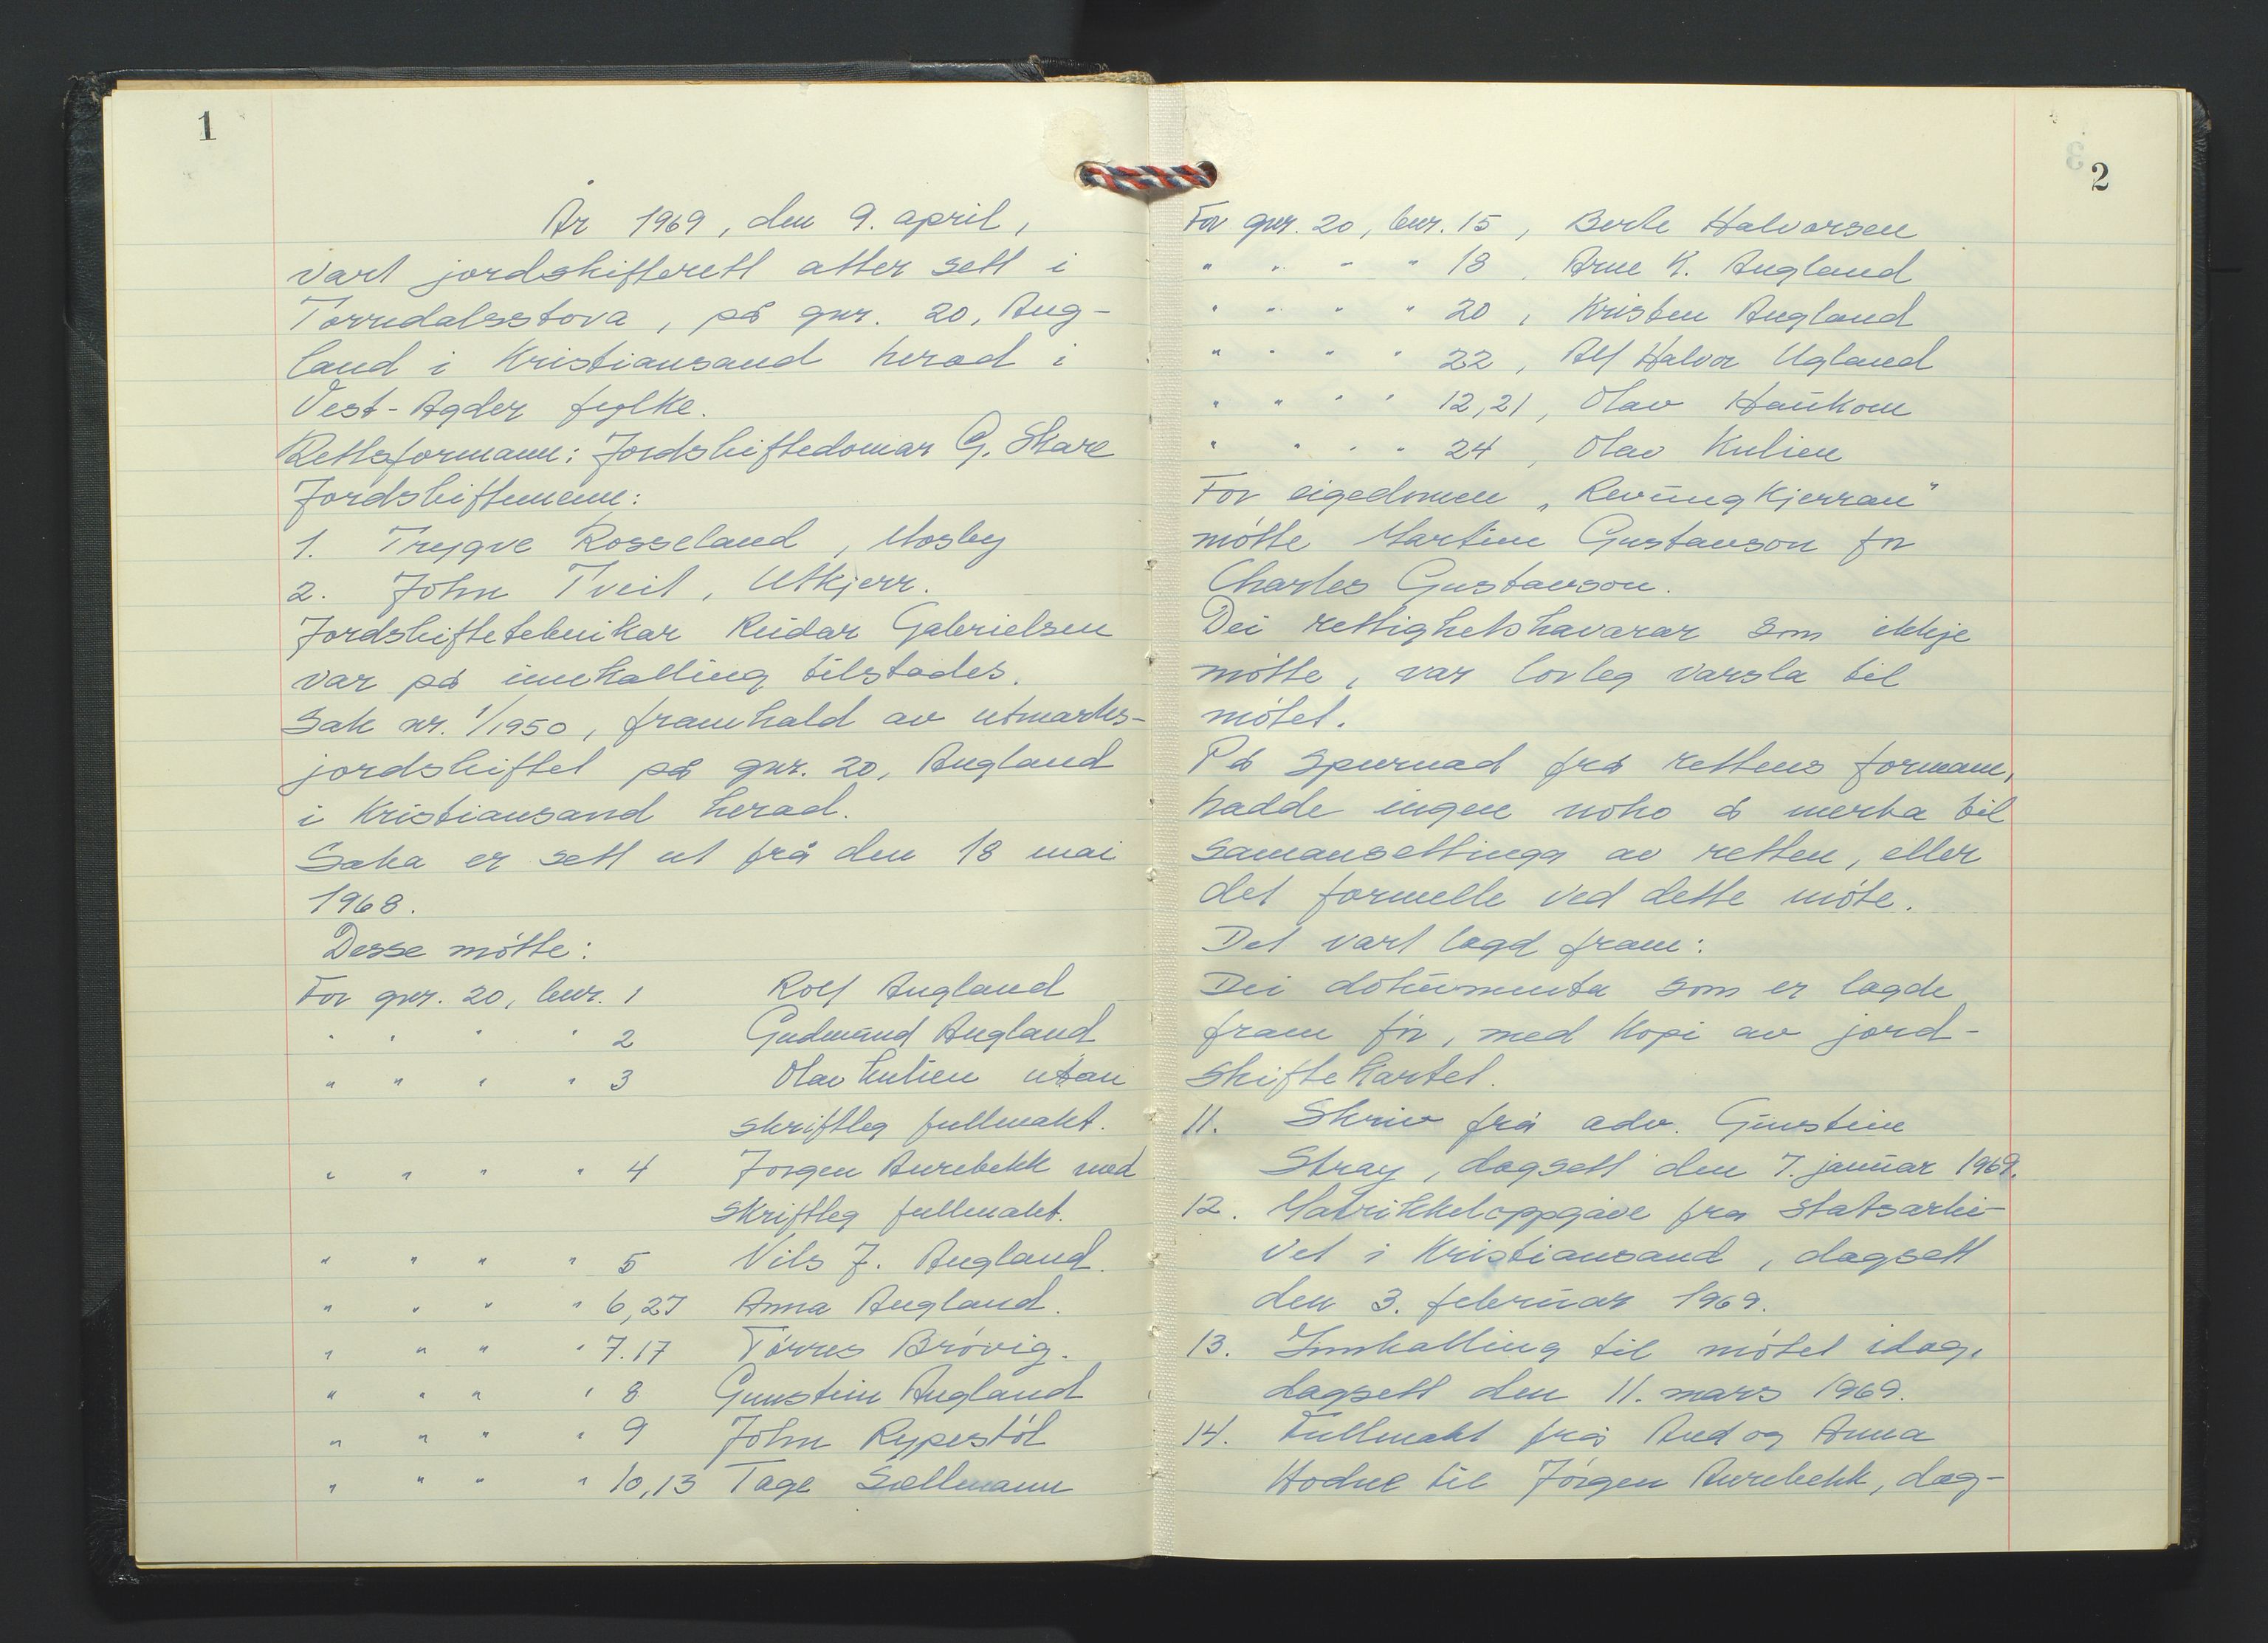 1
År 1969, den 9. april,
vart jordskifterett atter sett i
Torridalsstova, på gnr. 20, Aug-
land i Kristiansand herad i
Vest-Agder fylke.
Rettsformann: Jordskiftedomar G. Skare
Jordskiftemenn:
1. Trygve Rosseland, Mosby
2. John Tveit, Utkjerr.
Jordskifteteknikar Reidar Gabrielsen
var på innkalling tilstades.
Sak nr. 1/1950, framhald av utmarks-
jordskiftet på gnr. 20, Augland
i Kristiansand herad.
Saka er sett ut frå den 18 mai
1968.
Desse møtte:
For gnr. 20, bnr. 1 Rolf Augland
" " " " 2 Gudmund Augland
" " " " 3 Olav Kulien utan
skriftleg fullmakt.
" " " " 4 Jørgen Aurebekk med
skriftleg fullmakt.
" " " " 5 Nils J. Augland.
" " " " 6,27 Anna Augland.
" " " " 7.17 Tørres Brøvig.
" " " " 8 Gunstein Augland
" " " " 9 John Rypestøl
" " " " 10,13 Tage Sællmann
2
For gnr. 20, bnr. 15, Berle Halvorsen
" " " " 18, Arne K. Augland
" " " " 20, Kristen Augland
" " " " 22, Alf Halvor Ugland
" " " " 12,21, Olav Haukom
" " " " 24, Olav Kulien
For eigedomen „Revungkjerran"
møtte Martin Gustavson for
Charles Gustavson.
Dei rettighetshavarar som ikkje
møtte, var lovleg varsla til
møtet.
På spurnad frå rettens formann,
hadde ingen noko å merka til
samansettinga av retten, eller
det formelle ved dette møte.
Det vart lagd fram:
Dei dokumenta som er lagde
fram før, med kopi av jord-
skiftekartet.
11. Skriv frå adv. Gunstein
Stray, dagsett den 7. januar 1969.
12. Matrikkeloppgave fra statsarki-
vet i Kristiansand, dagsett
den 3. februar 1969.
13. Innkalling til møtet idag,
dagsett den 11. mars 1969.
14. Fullmakt frå Aud og Anna
Hodne til Jørgen Aurebekk, dag-